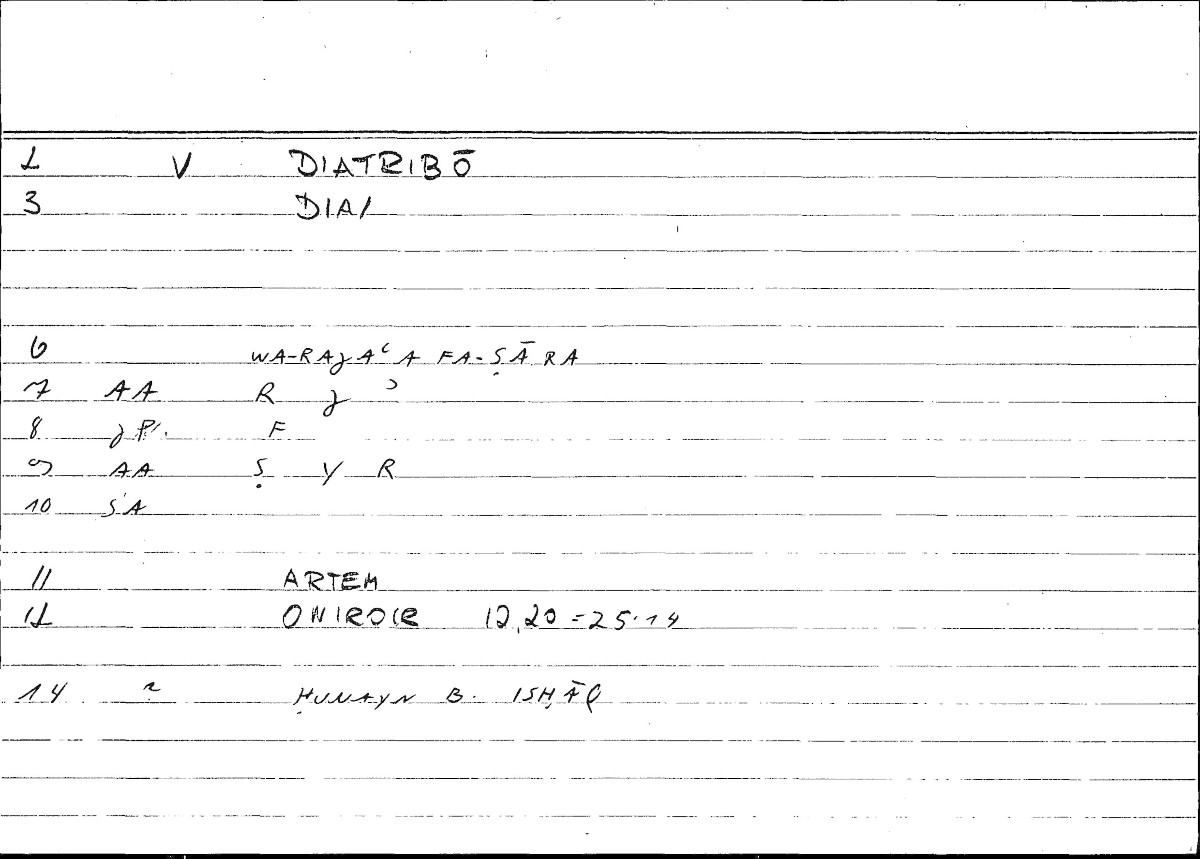 2 V DIATRIBŌ
3 DIA/
6 WA-RAJAʿA FA-ṢĀRA
7 AA R J ʾ
8 JP. F
9 AA Ṣ Y R
10 SA
11 ARTEM
12 ONIROCR 12,20 = 25.14
14 ḤUNAYN B. ISḤĀQ